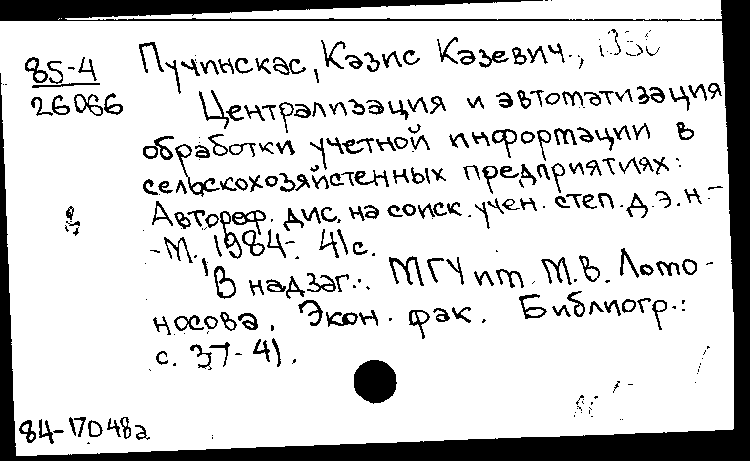 85-4
26066
Пучинскас, Казис Казевич.,
Централизация и автоматизация
обработки учетной информации в
сельскохозяйстенных предприятиях:
Автореф. дис. на соиск. учен. степ. д.э.н.-
-М., 1984-. 41с.
В надзаг.: МГУ им. М.В. Ломо-
носова. Экон. фак. Библиогр.:
с. 37-41.
84-17048а